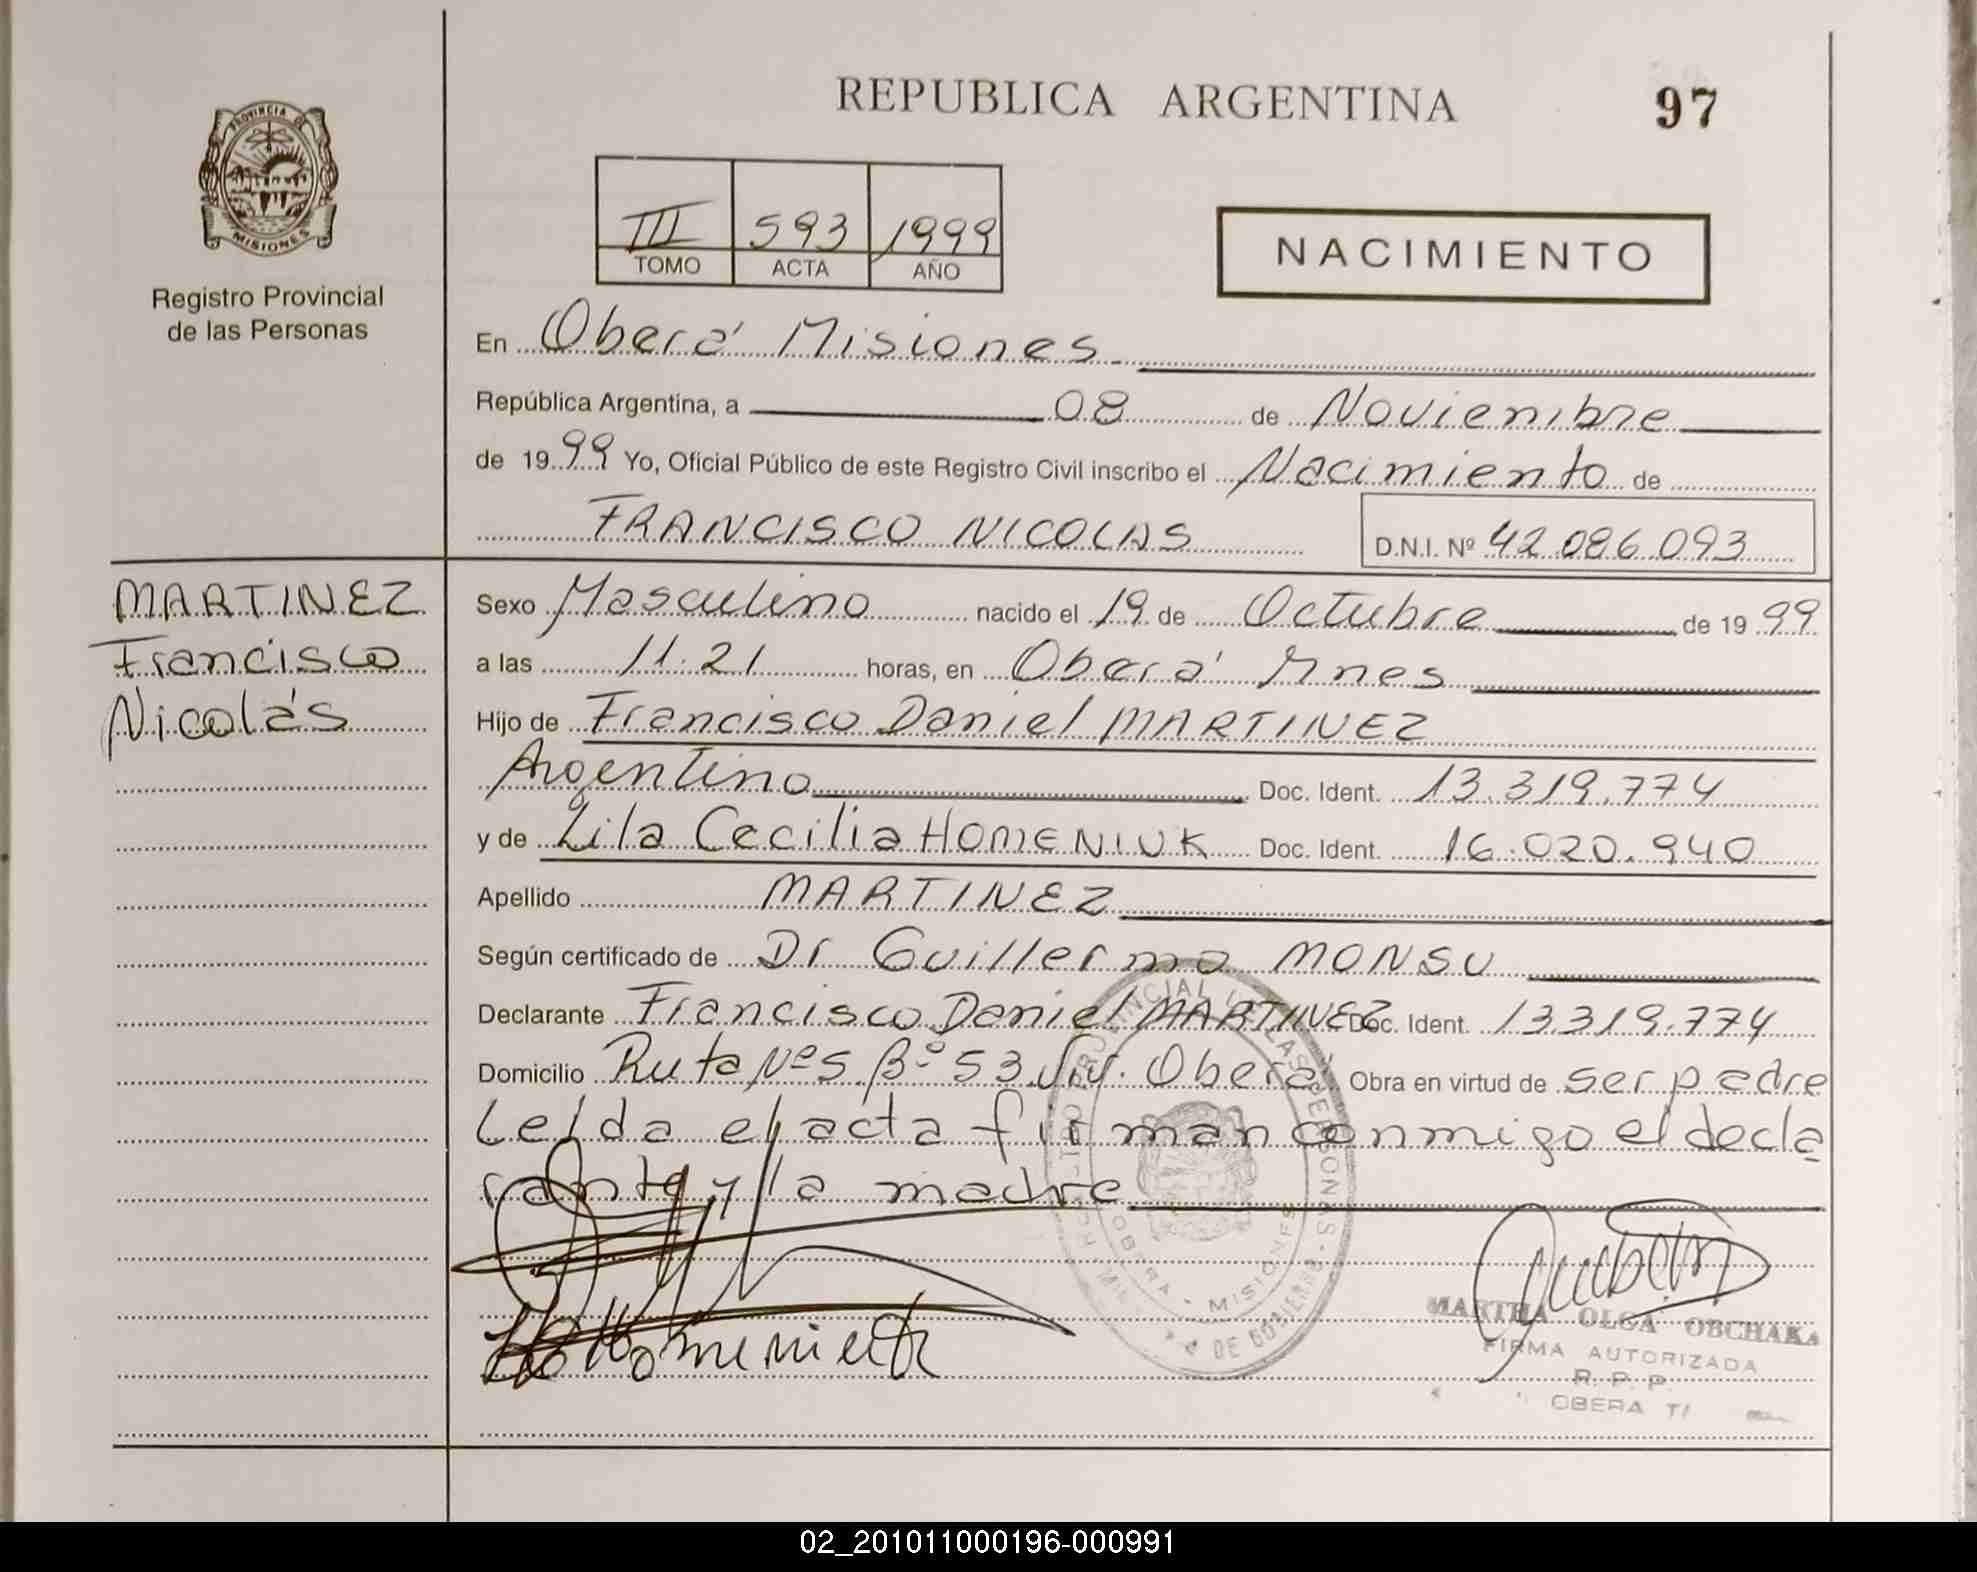 REPUBLICA ARGENTINA
97
PROVINCIA DE
MISIONES
Registro Provincial
de las Personas
III 593 1999
TOMO ACTA AÑO
NACIMIENTO
En Oberá Misiones
República Argentina, a 08 de Noviembre
de 1999 Yo, Oficial Público de este Registro Civil inscribo el Nacimiento de
FRANCISCO NICOLAS D.N.I. Nº 42.086.093
MARTINEZ
Francisco
Nicolás
Sexo Masculino nacido el 19 de Octubre de 1999
a las 11.21 horas, en Oberá Mnes
Hijo de Francisco Daniel MARTINEZ
Argentino Doc. Ident. 13.319.774
y de Lila Cecilia HOMENIUK Doc. Ident. 16.020.940
Apellido MARTINEZ
Según certificado de Dr Guillermo MONSU
Declarante Francisco Daniel MARTINEZ Doc. Ident. 13.319.774
Domicilio Ruta Nº5 Bº 53 Viv. Oberá Obra en virtud de ser padre
Leída el acta firman conmigo el decla
rante y la madre
OBERA - MISIONES
DE GOBIERNO
MARTHA OLGA OBCHAKA
FIRMA AUTORIZADA
R. P. P.
OBERA
02_201011000196-000991